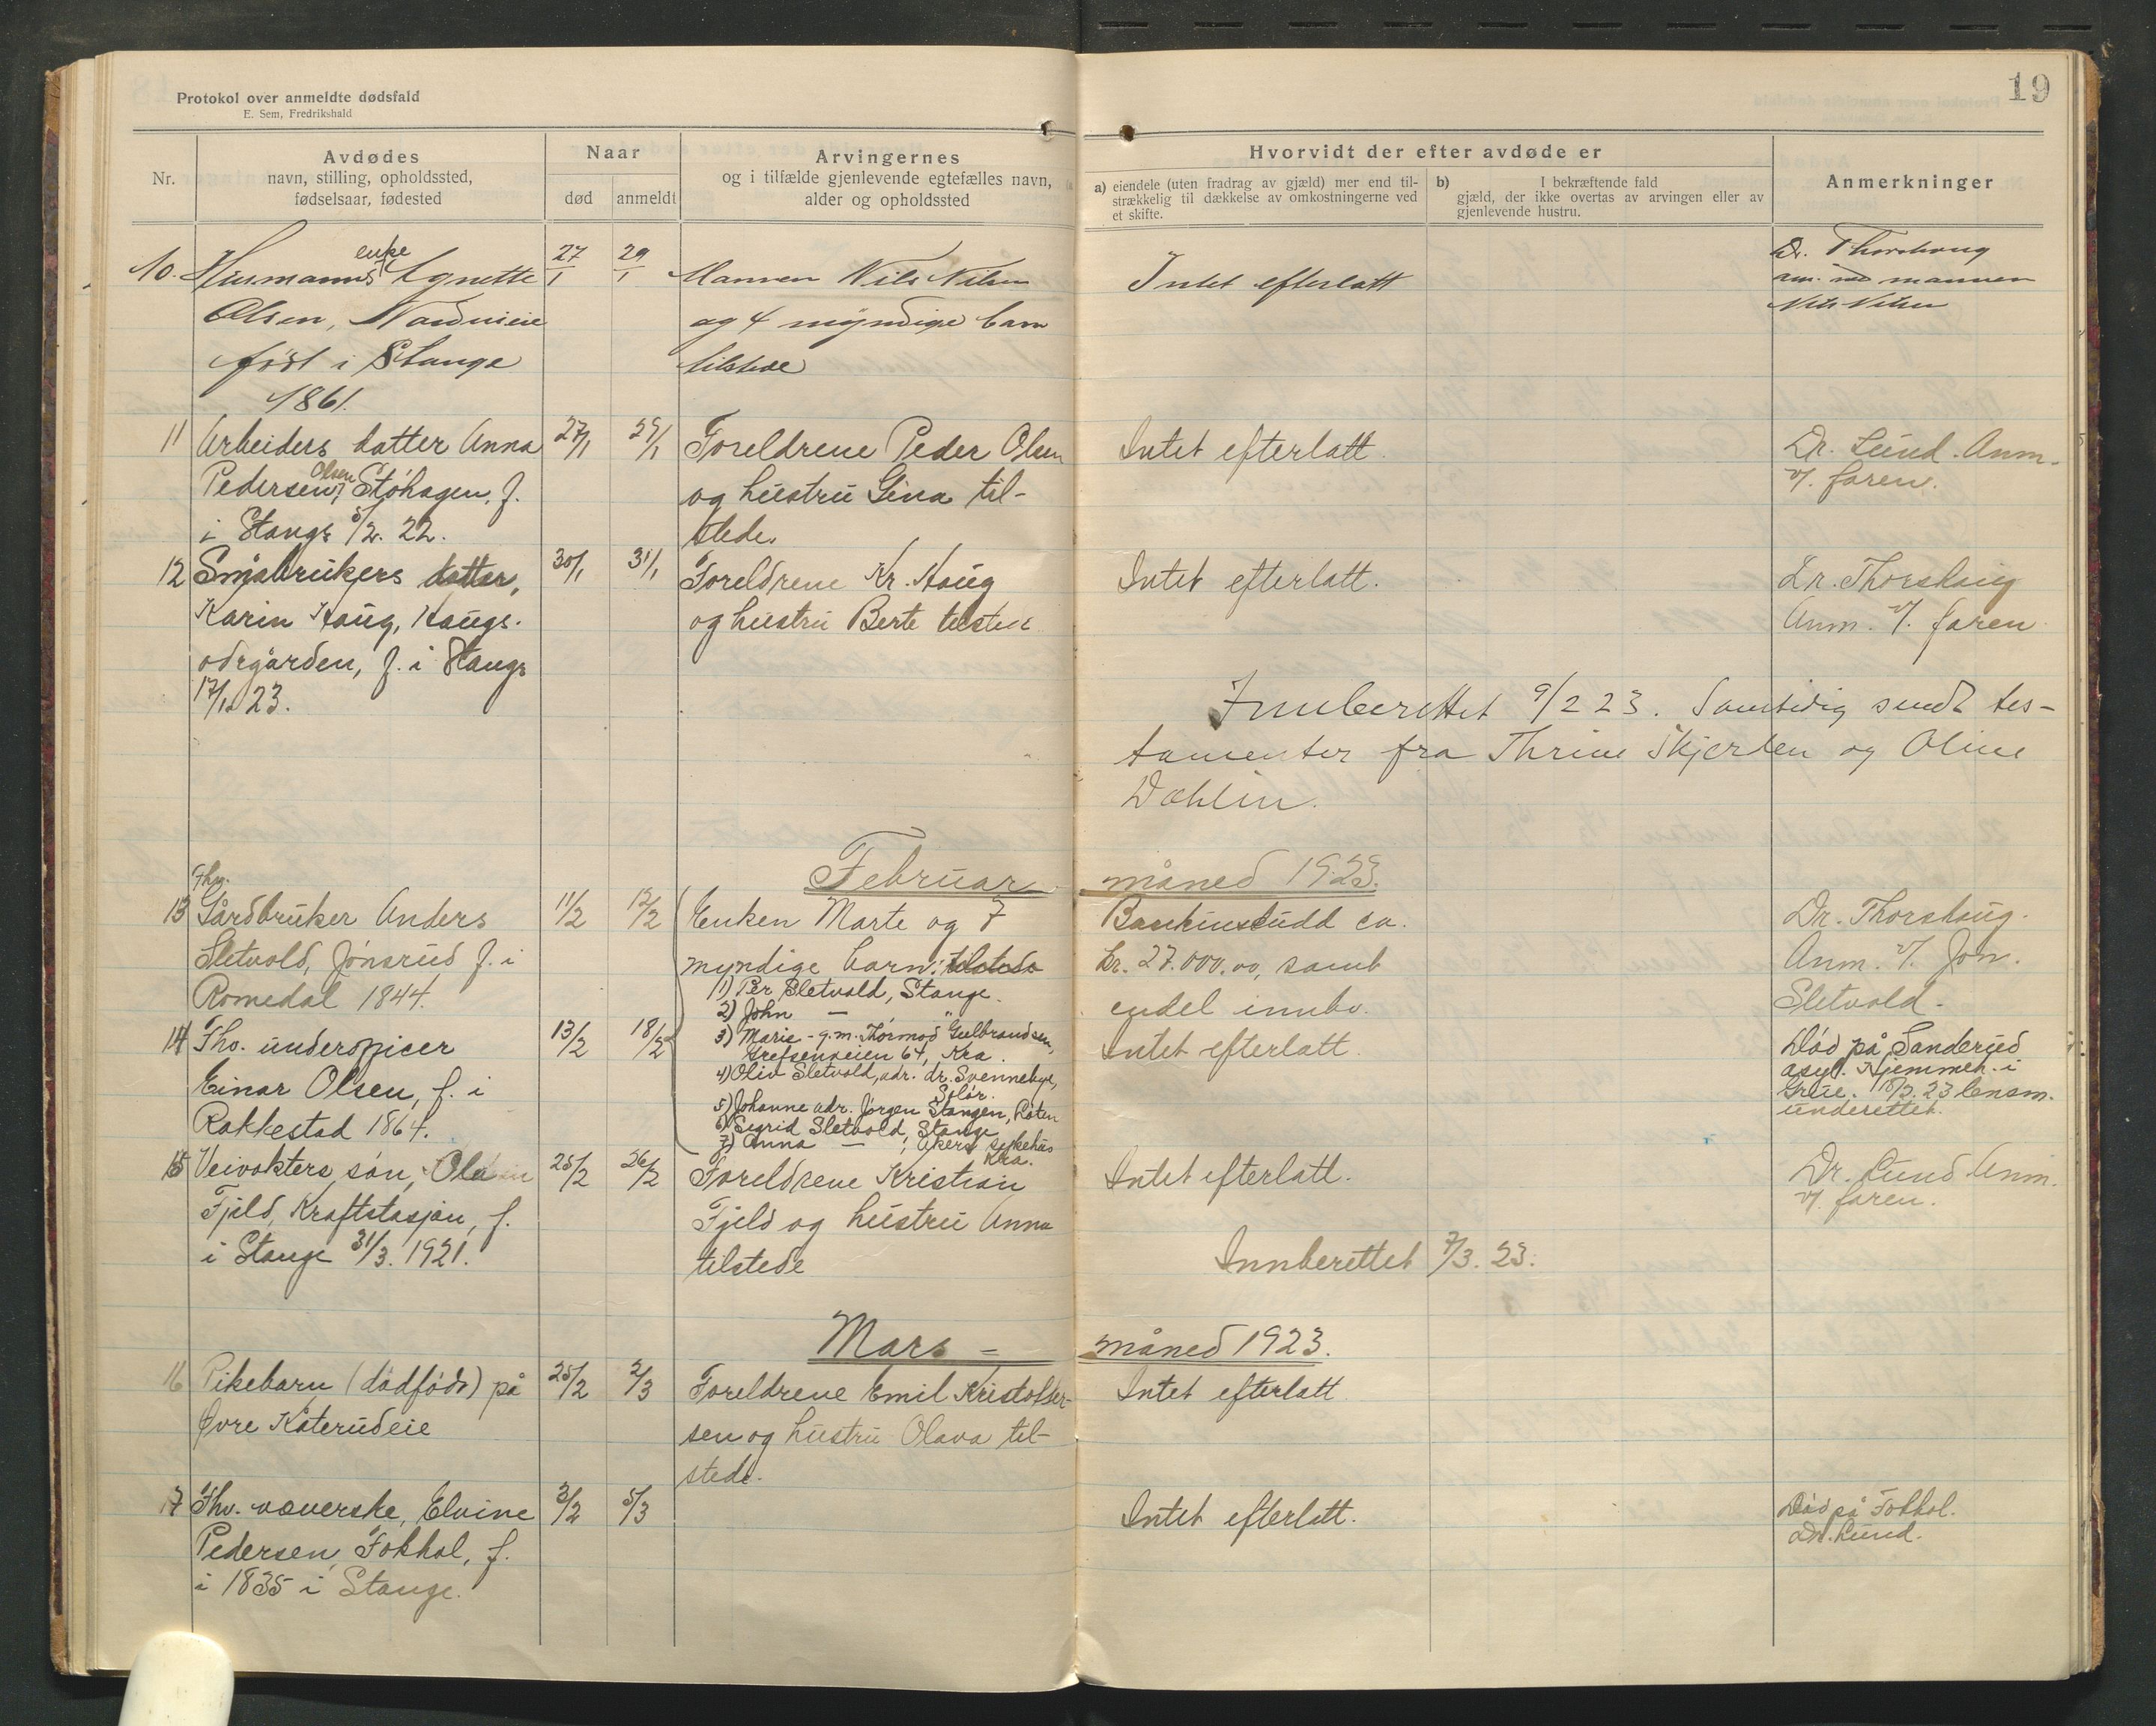 19
Protokol over anmeldte dødsfald
E. Sem, Fredrikshald
Nr.
Avdødes
navn, stilling, opholdssted,
fødselsaar, fødested
Naar
død
anmeldt
Arvingernes
og i tilfælde gjenlevende egtefælles navn,
alder og opholdssted
Hvorvidt der efter avdøde er
a) eiendele (uten fradrag av gjæld) mer end til-
strækkelig til dækkelse av omkostningerne ved
et skifte.
b) I bekræftende fald
gjæld, der ikke overtas av arvingen eller av
gjenlevende hustru.
Anmerkninger
10. Husmanns enke Agnette
Olsen,
født i Stange
1861.
27/1
29/1
Mannen Nils Nilsen
og 4 myndige barn
tilstede
Intet efterlatt
Dr. Thorshaug
anm. ved mannen
Nils Nilsen
11 Arbeiders datter Anna
Pedersen, Olsen Stohagen, f.
i Stange 5/2. 22.
27/1
29/1
Foreldrene Peder Olsen
og hustru Gina til-
stede.
Intet efterlatt.
Dr. Lund. Anm.
v/. faren.
12 Småbrukers datter,
Karin Haug, Haugs-
ødegården, f. i Stange
17/1. 23.
30/1
31/1
Foreldrene Kr. Haug
og hustru Berte tilstede
Intet efterlatt.
Dr. Thorshaug
Anm. v/. faren
Innberettet 9/2 23. Samtidig sendt tes-
tamenter fra Thrine Skjerden og Oline
Dahlin.
Februar måned 1923.
13 Fhv.
Gårdbruker Anders
Sletvold, Jønsrud f. i
Romedal 1844.
11/2
12/2
Enken Marte og 7
myndige barn: tilstede
1) Per Sletvold, Stange.
2) John — "
3) Marie - g.m. Thormod Gulbrandsen,
Grefsenveien 64, Kra.
4) Oliv Sletvold, adr. dr. Svennebye,
Solør.
5) Johanne adr. Jørgen Stangen, Løten
6) Sigrid Sletvold, Stange
7) Anna — , Akers sykehus
Kra.
Bankinskudd ca.
kr. 27.000,00, samt
endel innbo.
Dr. Thorshaug.
Anm. v/. Jon.
Sletvold.
14 Fhv. underoffiser
Einar Olsen, f. i
Rakkestad 1864.
13/2
18/2
Intet efterlatt.
Død på Sanderud
asyl. Hjemmeh. i
Grue. 18/2. 23 lensm.
underrettet.
15 Veivokters søn, Ola
Fjeld, Kraftstasjon, f.
i Stange 31/3. 1921.
25/2
26/2
Foreldrene Kristian
Fjeld og hustru Anna
tilstede
Intet efterlatt.
Dr. Lund Anm.
v/. faren.
Innberettet 7/3. 23.
Mars - måned 1923.
16 Pikebarn (dødfødt) på
Øvre Kåterudeie
25/2
2/3
Foreldrene Emil Kristoffer-
sen og hustru Olava til-
stede.
Intet efterlatt
17 Fhv. væverske, Elvine
Pedersen, Fokhol, f.
i 1835 i Stange.
3/2
5/3
Intet efterlatt.
Død på Fokhol.
Dr. Lund.